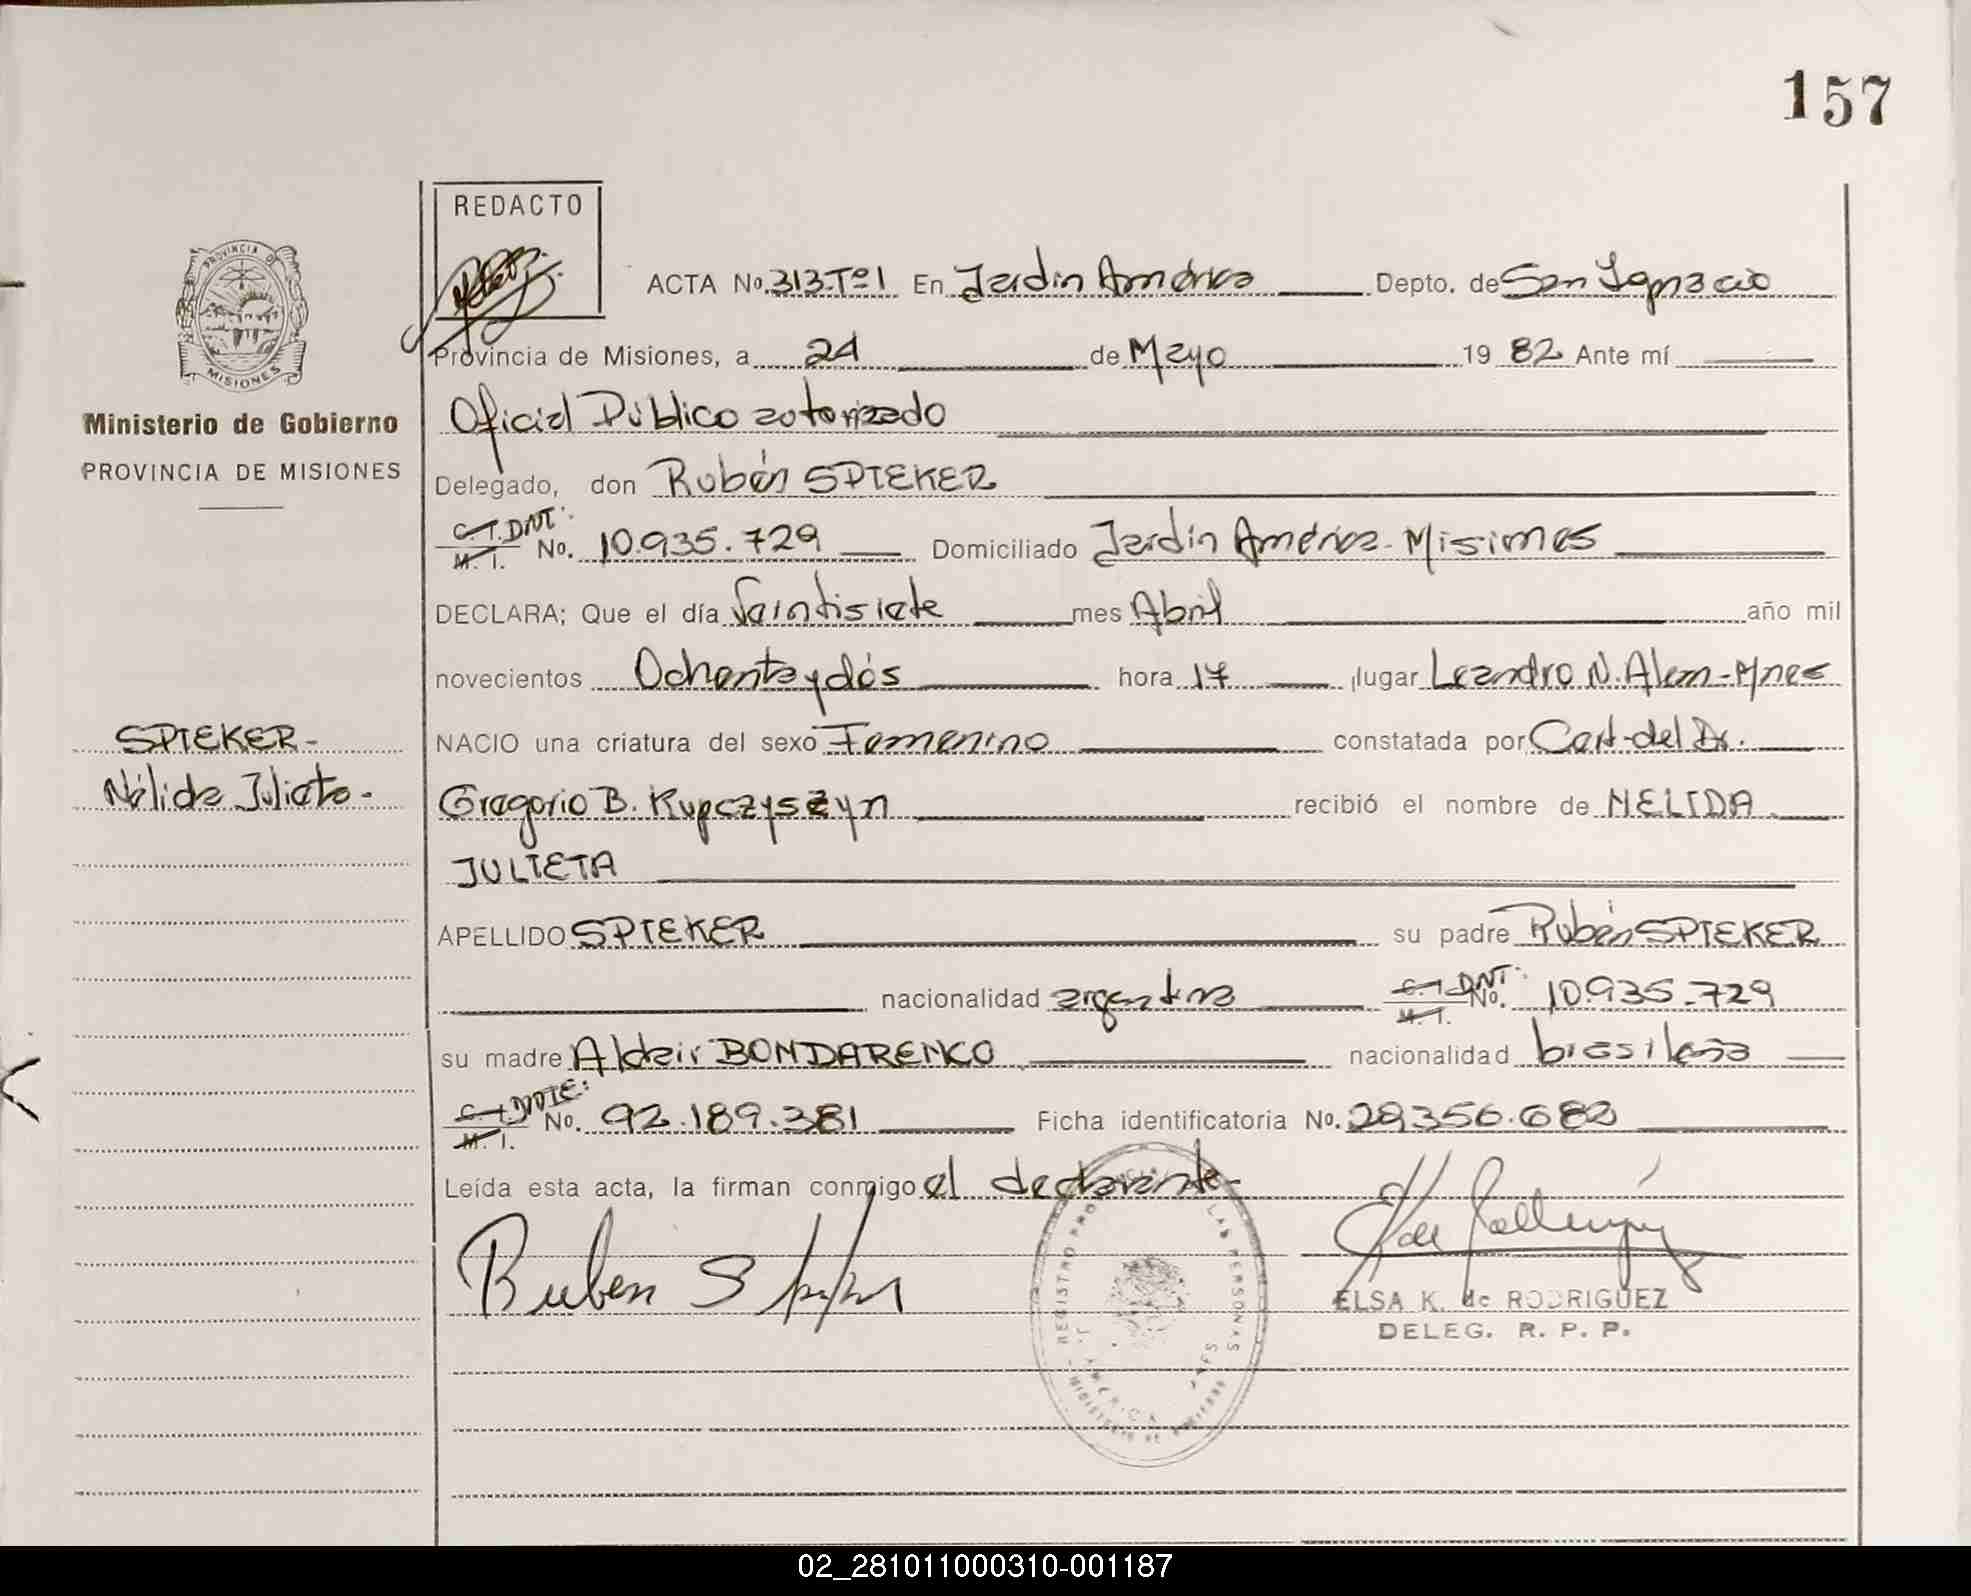 157
REDACTO
PROVINCIA DE
MISIONES
Ministerio de Gobierno
PROVINCIA DE MISIONES
ACTA No. 313-Tº1 En Jardín América Depto. de San Ignacio
Provincia de Misiones, a 24 de Mayo 19 82 Ante mí
Oficial Público autorizado
Delegado, don Rubén SPIEKER
C.I. DNI: M. I. No. 10.935.729 Domiciliado Jardín América - Misiones
DECLARA; Que el día Veintisiete mes Abril año mil
novecientos Ochenta y dós hora 17 lugar Leandro N. Alem - Mnes
SPIEKER -
Nélida Julieta -
NACIO una criatura del sexo Femenino constatada por Cert. del Dr.
Gregorio B. Kupczyszyn recibió el nombre de NELIDA
JULIETA
APELLIDO SPIEKER su padre Rubén SPIEKER
nacionalidad argentina C.I. DNI: M. I. No. 10.935.729
su madre Aldair BONDARENCO nacionalidad brasileña
C.I. M. I. No. 92.189.381 Ficha identificatoria No. 29.356.682
Leída esta acta, la firman conmigo el declarante-
Ruben
REGISTRO LAS PERSONAS
ELSA K. de RODRIGUEZ
DELEG. R. P. P.
02_281011000310-001187